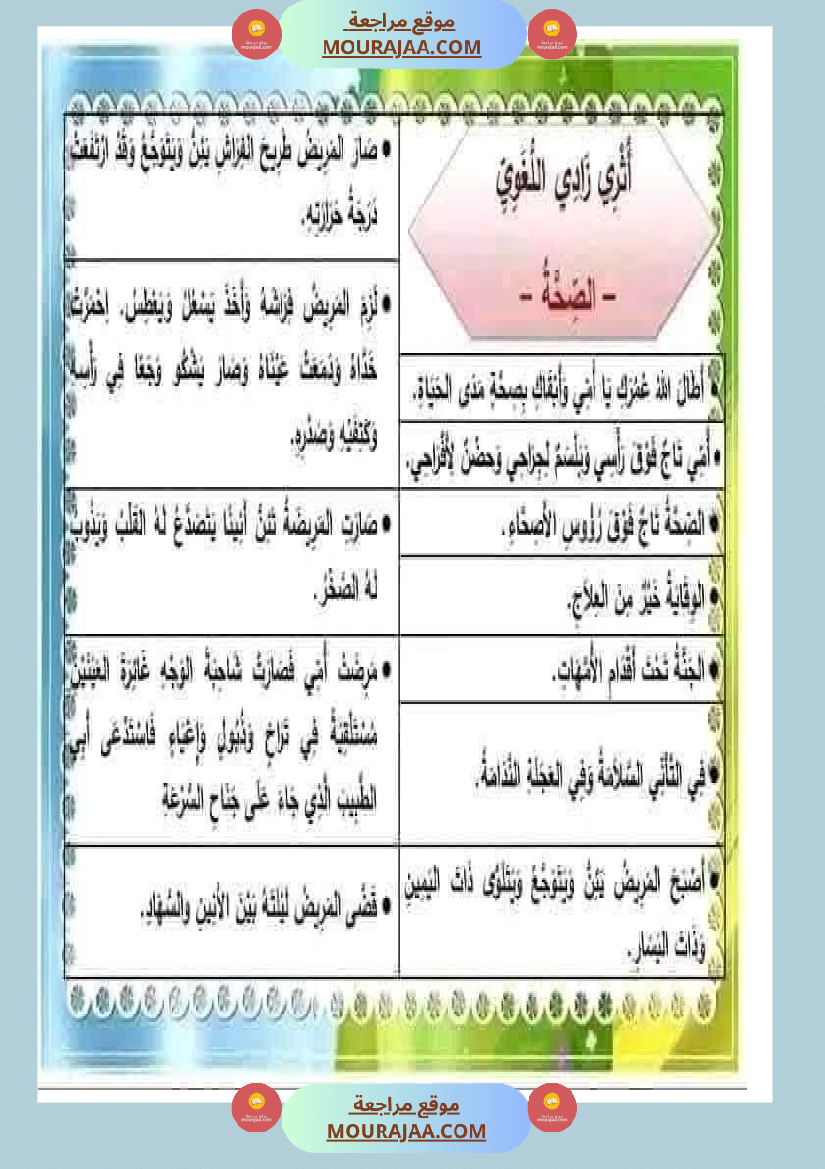 موقع مراجعة
MOURAJAA.COM
أُثْرِي زَادِي اللُّغَوِيَّ
– الصِّحَّةُ –
• أَطَالَ اللهُ عُمُرَكِ يَا أُمِّي وَأَبْقَاكِ بِصِحَّةٍ مَدَى الحَيَاةِ.
• أُمِّي تَاجٌ فَوْقَ رَأْسِي وَبَلْسَمٌ لِجِرَاحِي وَحضْنٌ لِأَفْرَاحِي.
• الصِّحَّةُ تَاجٌ فَوْقَ رُؤُوسِ الأَصِحَّاءِ.
• الوِقَايَةُ خَيْرٌ مِنَ العِلاَجِ.
• الجَنَّةُ تَحْتَ أَقْدَامِ الأُمَّهَاتِ.
• فِي التَّأَنِّي السَّلاَمَةُ وَفِي العَجَلَةِ النَّدَامَةُ.
• أَصْبَحَ المَرِيضُ يَئِنُّ وَيَتَوَجَّعُ وَيَتَلَوَّى ذَاتَ اليَمِينِ
وَذَاتَ اليَسَارِ.
• صَارَ المَرِيضُ طَرِيحَ الفِرَاشِ يَئِنُّ وَيَتَوَجَّعُ وَقَدْ ارْتَفَعَتْ
دَرَجَةُ حَرَارَتِهِ.
• لَزِمَ المَرِيضُ فِرَاشَهُ وَأَخَذَ يَسْعُلُ وَيَعْطِسُ. اِحْمَرَّتْ
خَدَّاهُ وَدَمَعَتْ عَيْنَاهُ وَصَارَ يَشْكُو وَجَعًا فِي رَأْسِهِ
وَكَتِفَيْهِ وَصَدْرِهِ.
• صَارَتِ المَرِيضَةُ تَئِنُّ أَنِينًا يَتَصَدَّعُ لَهُ القَلْبُ وَيَذُوبُ
لَهُ الصَّخْرُ.
• مَرِضَتْ أُمِّي فَصَارَتْ شَاحِبَةَ الوَجْهِ غَائِرَةَ العَيْنَيْنِ
مُسْتَلْقِيَةً فِي تَرَاخٍ وَذُبُولٍ وَإِعْيَاءٍ فَاسْتَدْعَى أَبِي
الطَّبِيبَ الَّذِي جَاءَ عَلَى جَنَاحِ السُّرْعَةِ
• قَضَّى المَرِيضُ لَيْلَتَهُ بَيْنَ الأَنِينِ والسُّهَادِ.
موقع مراجعة
MOURAJAA.COM